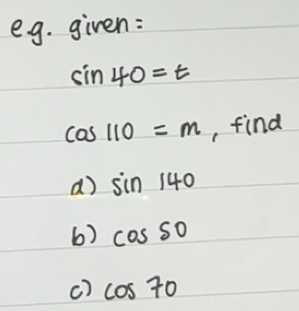 e.g. given:
sin 40 = t
cos 110 = m, find
a) sin 140
b) cos 50
c) cos 70